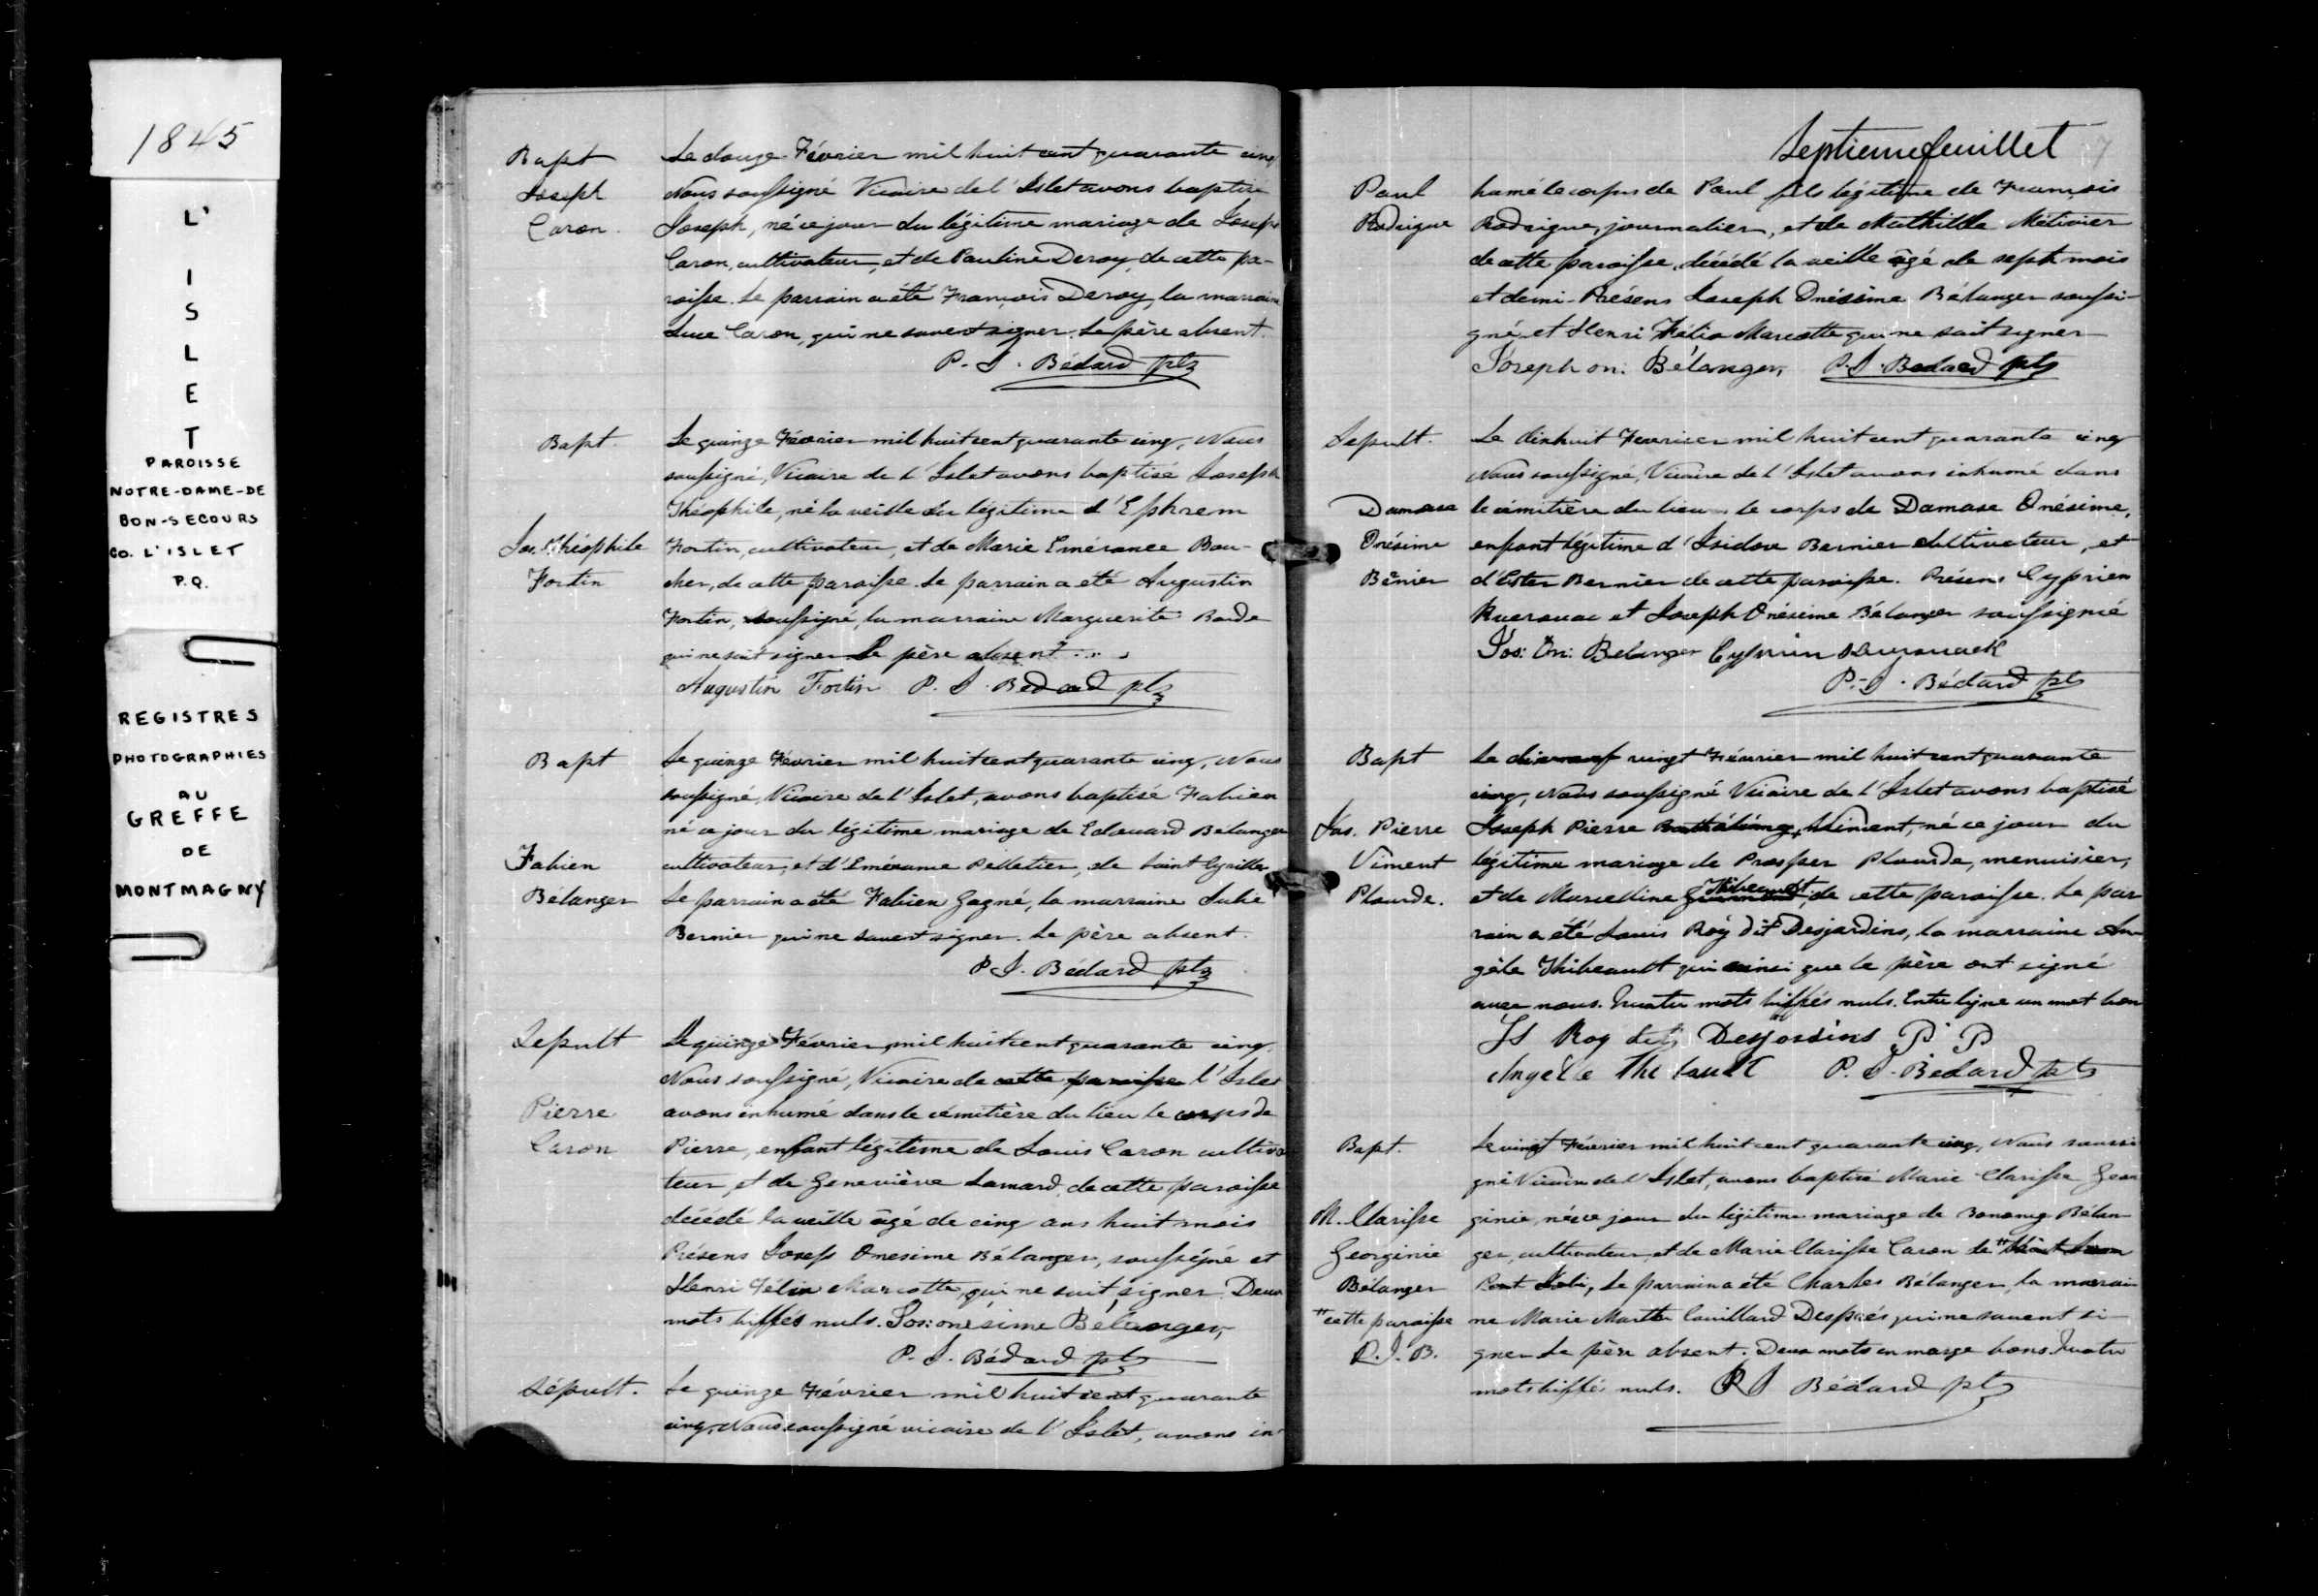 1845
L'
I
S
L
E
T
PAROISSE
NOTRE-DAME-DE
BON-SECOURS
CO. L'ISLET
P.Q.
REGISTRES
PHOTOGRAPHIES
AU
GREFFE
DE
MONTMAGNY
Bapt
Joseph
Caron.
Le douze Février mil huit cent quarante cinq
Nous soussigné Vicaire de l'Islet avons baptisé
Joseph, né ce jour du légitime mariage de Joseph
Caron, cultivateur, et de Pauline Deroy, de cette pa-
roisse. Le parrain a été François Deroy, la marraine
Luce Caron, qui ne savent signer. Le père absent.
P. J. Bédard ptr
Bapt.
Jos. Théophile
Fortin
Le quinze Février mil huit cent quarante cinq, Nous
soussigné, Vicaire de l'Islet avons baptisé Joseph
Théophile, né la veille du légitime d'Ephrem
Fortin, cultivateur, et de Marie Emérance Bou-
cher, de cette paroisse. Le parrain a été Augustin
Fortin, soussigné, la marraine Marguerite
qui ne sait signer Le père absent
Augustin Fortin P. J. Bedard ptr
Bapt
Fabien
Bélanger
Le quinze Février mil huit cent quarante cinq, Nous
soussigné, Vicaire de l'Islet, avons baptisé Fabien
né ce jour du légitime mariage de Edouard Bélanger
cultivateur, et d'Emérance Pelletier, de Saint Cyrille
Le parrain a été Fabien Gagné, la marraine Julie
Bernier qui ne savent signer. Le père absent.
P. J. Bédard ptr
Sepult
Pierre
Caron
Le quinze Février, mil huit cent quarante cinq.
Nous soussigné, Vicaire de cette paroisse l'Islet
avons inhumé dans le cémitière du lieu le corps de
Pierre, enfant légitime de Louis Caron cultiva
teur, et de Geneviève Lamard, de cette paroisse
décédé la veille âgé de cinq ans huit mois
Présens Joseph Onesime Bélanger, soussigné et
Henri Félix Marcotte, qui ne sait signer. Deux
mots biffés nuls. Jos: onésime Bélanger,
P. J. Bédard ptr
Sépult.
Le quinze Février mil huit cent quarante
cinq, Nous soussigné vicaire de l'Islet, avons in
Septieme feuillet 7
Paul
Rodrigue
humé le corps de Paul fils légitime de François
Rodrigue, journalier, et de Mathilde Métivier
de cette paroisse, décédé la veille âgé de sept mois
et demi. Présens Joseph Onésime Bélanger soussi-
gné, et Henri Félix Marcotte qui ne sait signer
Joseph on: Bélanger, P. J. Bedard ptr
Sepult.
Damase
Onésime
Bernier
Le dixhuit Fevrier mil huit cent quarante cinq
Nous soussigné, Vicaire de l'Islet avons inhumé dans
le cémitière du lieu le corps de Damase Onésime,
enfant légitime d'Isidore Bernier cultivateur, et
d'Ester Bernier de cette paroisse. Présens Cyprien
Kuerouac et Joseph Onésime Bélanger soussignié
Jos: On: Belanger Cyprien Kuerouack
P. J. Bédard ptr
Bapt
Jos. Pierre
Viment
Plourde.
Le dixneuf vingt Février mil huit cent quarante
cinq, Nous soussigné Vicaire de l'Islet avons baptisé
Joseph Pierre Viment, né ce jour du
légitime mariage de Prosper Plourde, menuisier,
et de Marcelline Thibeault, de cette paroisse. Le par
rain a été Louis Roy dit Desjardins, la marraine An
gèle Thibeault qui ainsi que le père ont signé
avec nous. Quatre mots biffés nuls. Entre ligne un mot bon
Ls Roy dit Desjardins P P
Angèle P. J. Bédard ptr
Bapt.
M. Clarisse
Georginie
Bélanger
"cette paroisse
P. J. B.
Le vingt Février mil huit cent quarante cinq, Nous soussi
gné Vicaire de l'Islet, avons baptisé Marie Clarisse Geor
ginie, née ce jour du légitime mariage de Bélan
ger, cultivateur, et de Marie Clarisse Caron de "Saint Jean
Port Joli, Le parrain a été Charles Bélanger, la marrai
ne Marie Marthe Couillard Després qui ne savent si
gner Le père absent. Deux mots en marge bons. Quatre
mots biffés nuls. P J Bédard ptr